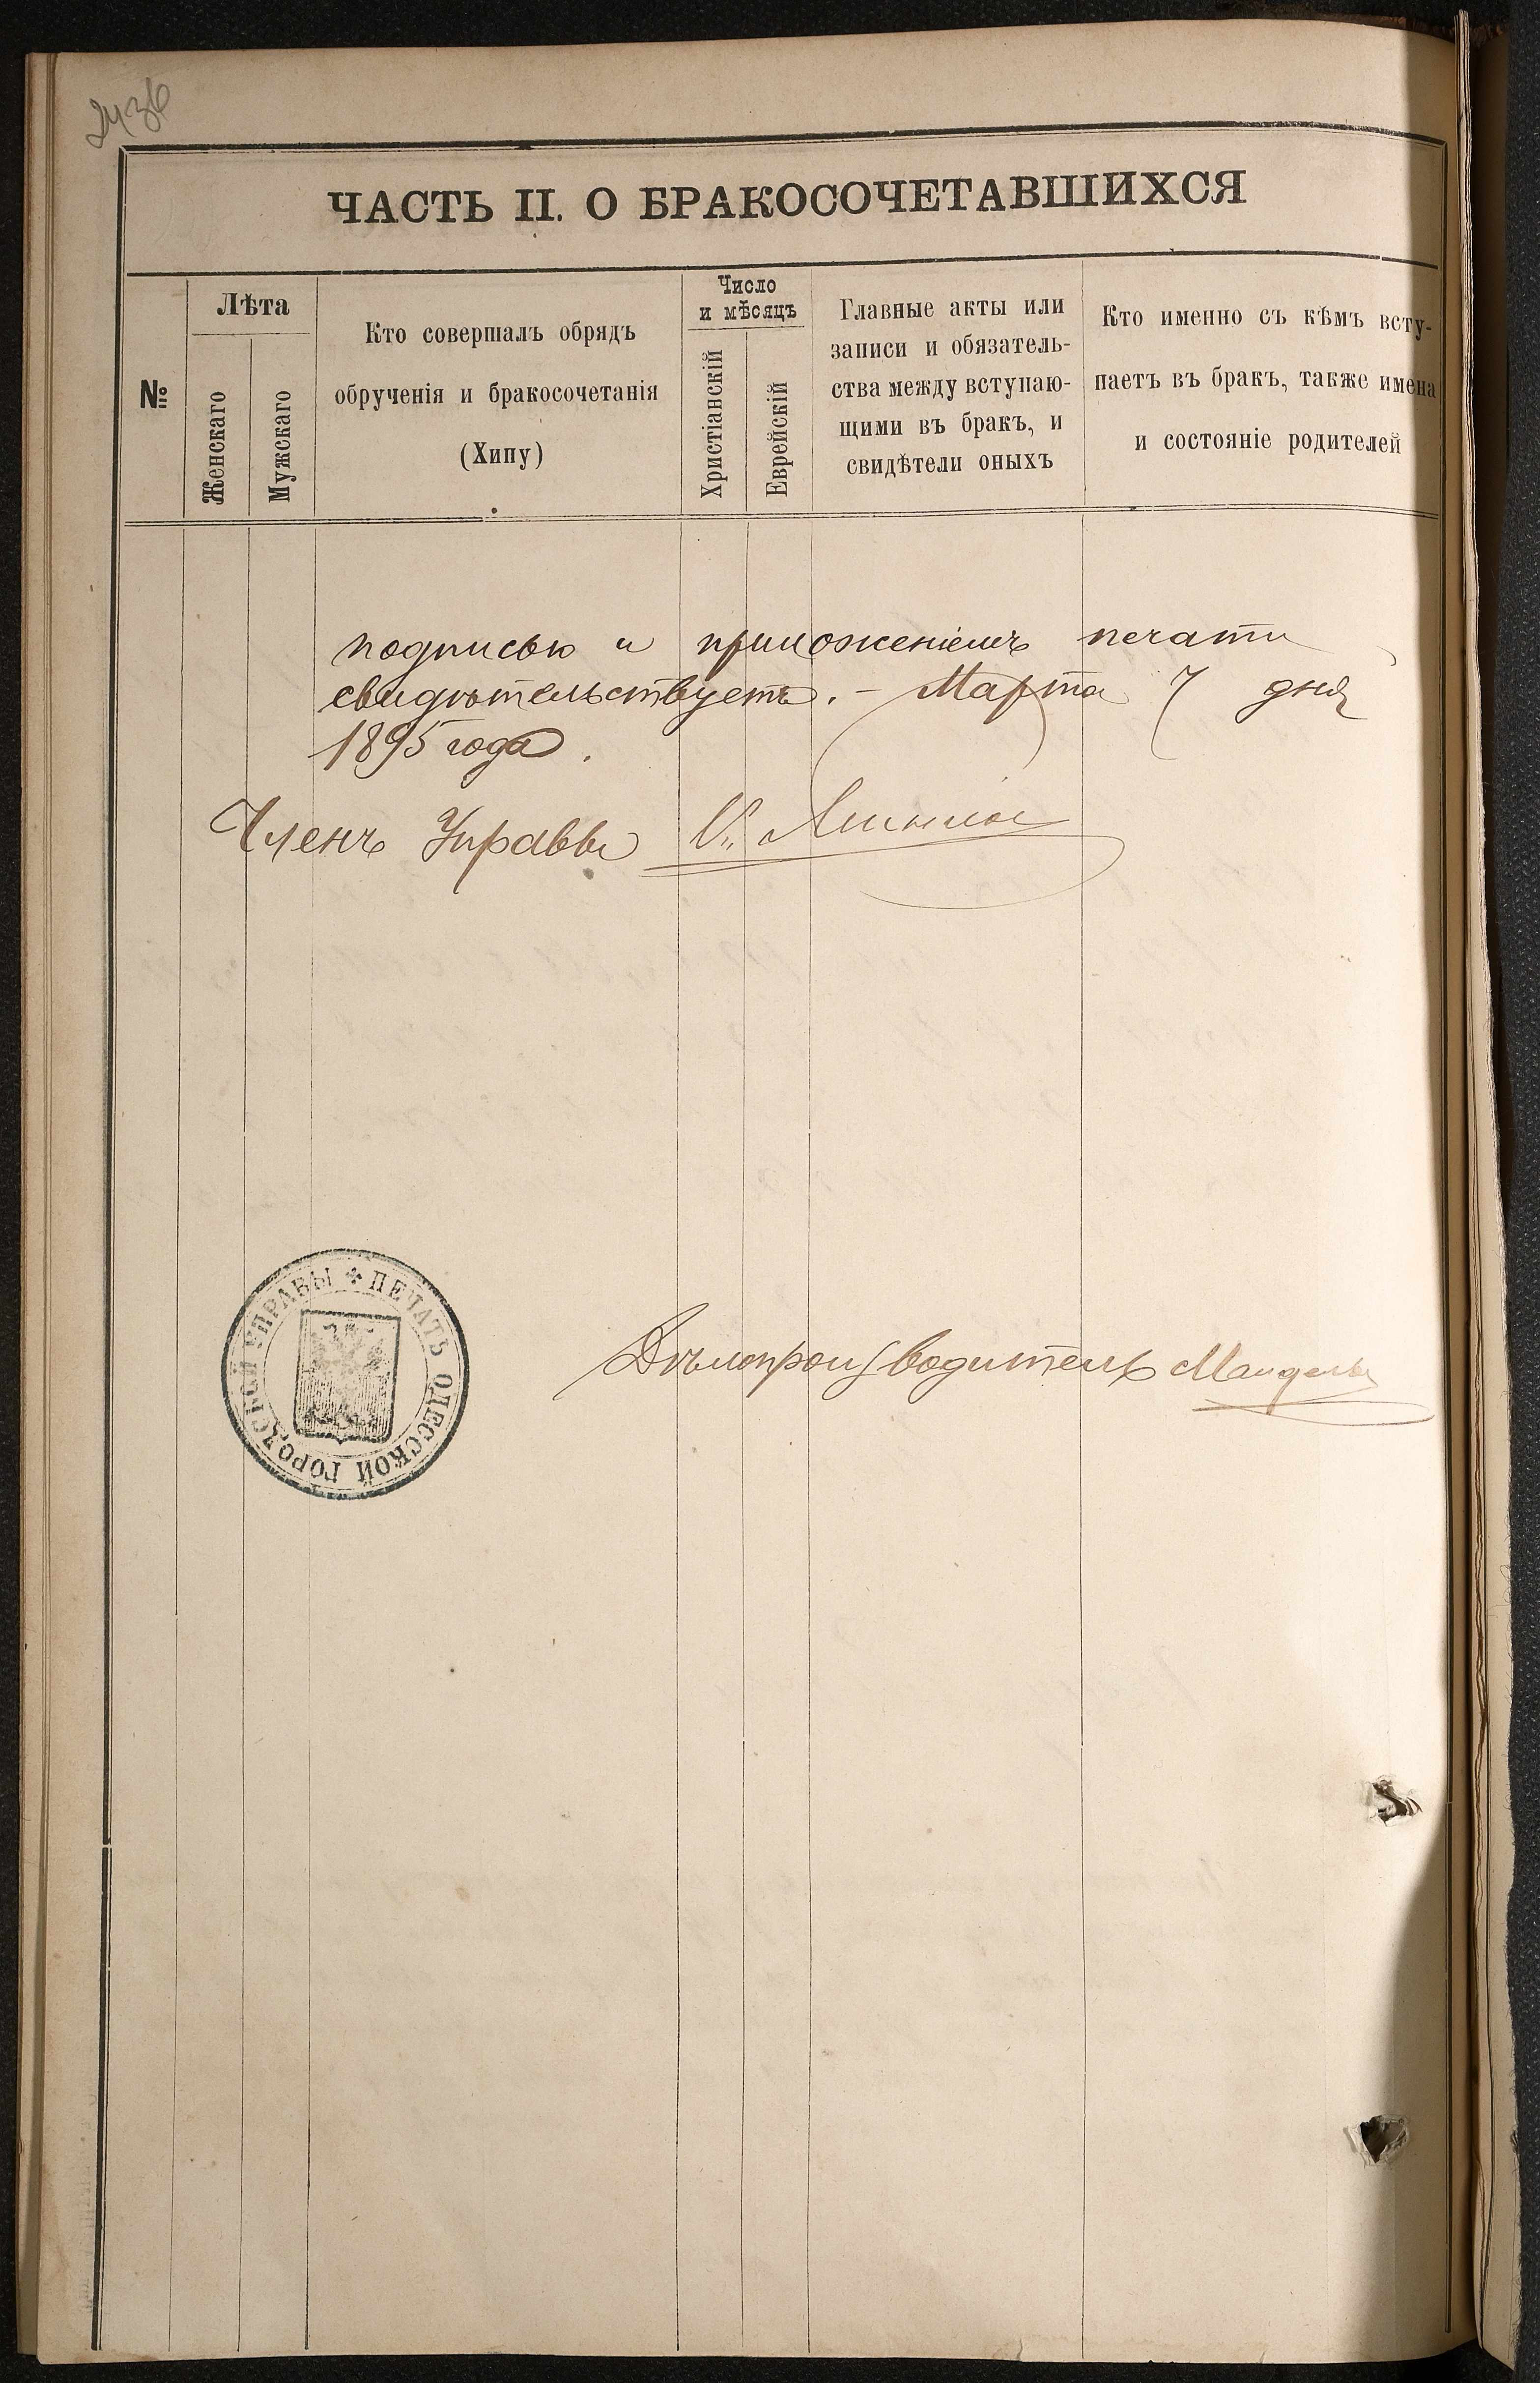 2436
ЧАСТЬ II. О БРАКОСОЧЕТАВШИХСЯ
№
Лѣта
Женскаго
Мужскаго
Кто совершалъ обрядъ
обрученія и бракосочетанія
(Хипу)
Число
и мѣсяцъ
Христіанскій
Еврейскій
Главные акты или
записи и обязатель-
ства между вступаю-
щими въ бракъ, и
свидѣтели оныхъ
Кто именно съ кѣмъ всту-
паетъ въ бракъ, также имена
и состояніе родителей
подписью и приложеніемъ печати
свидѣтельствуетъ. – Марта 7 дня
1895 года.
Членъ Управы
ПЕЧАТЬ ОДЕССКОЙ ГОРОДСКОЙ УПРАВЫ
Дѣлопроизводитель